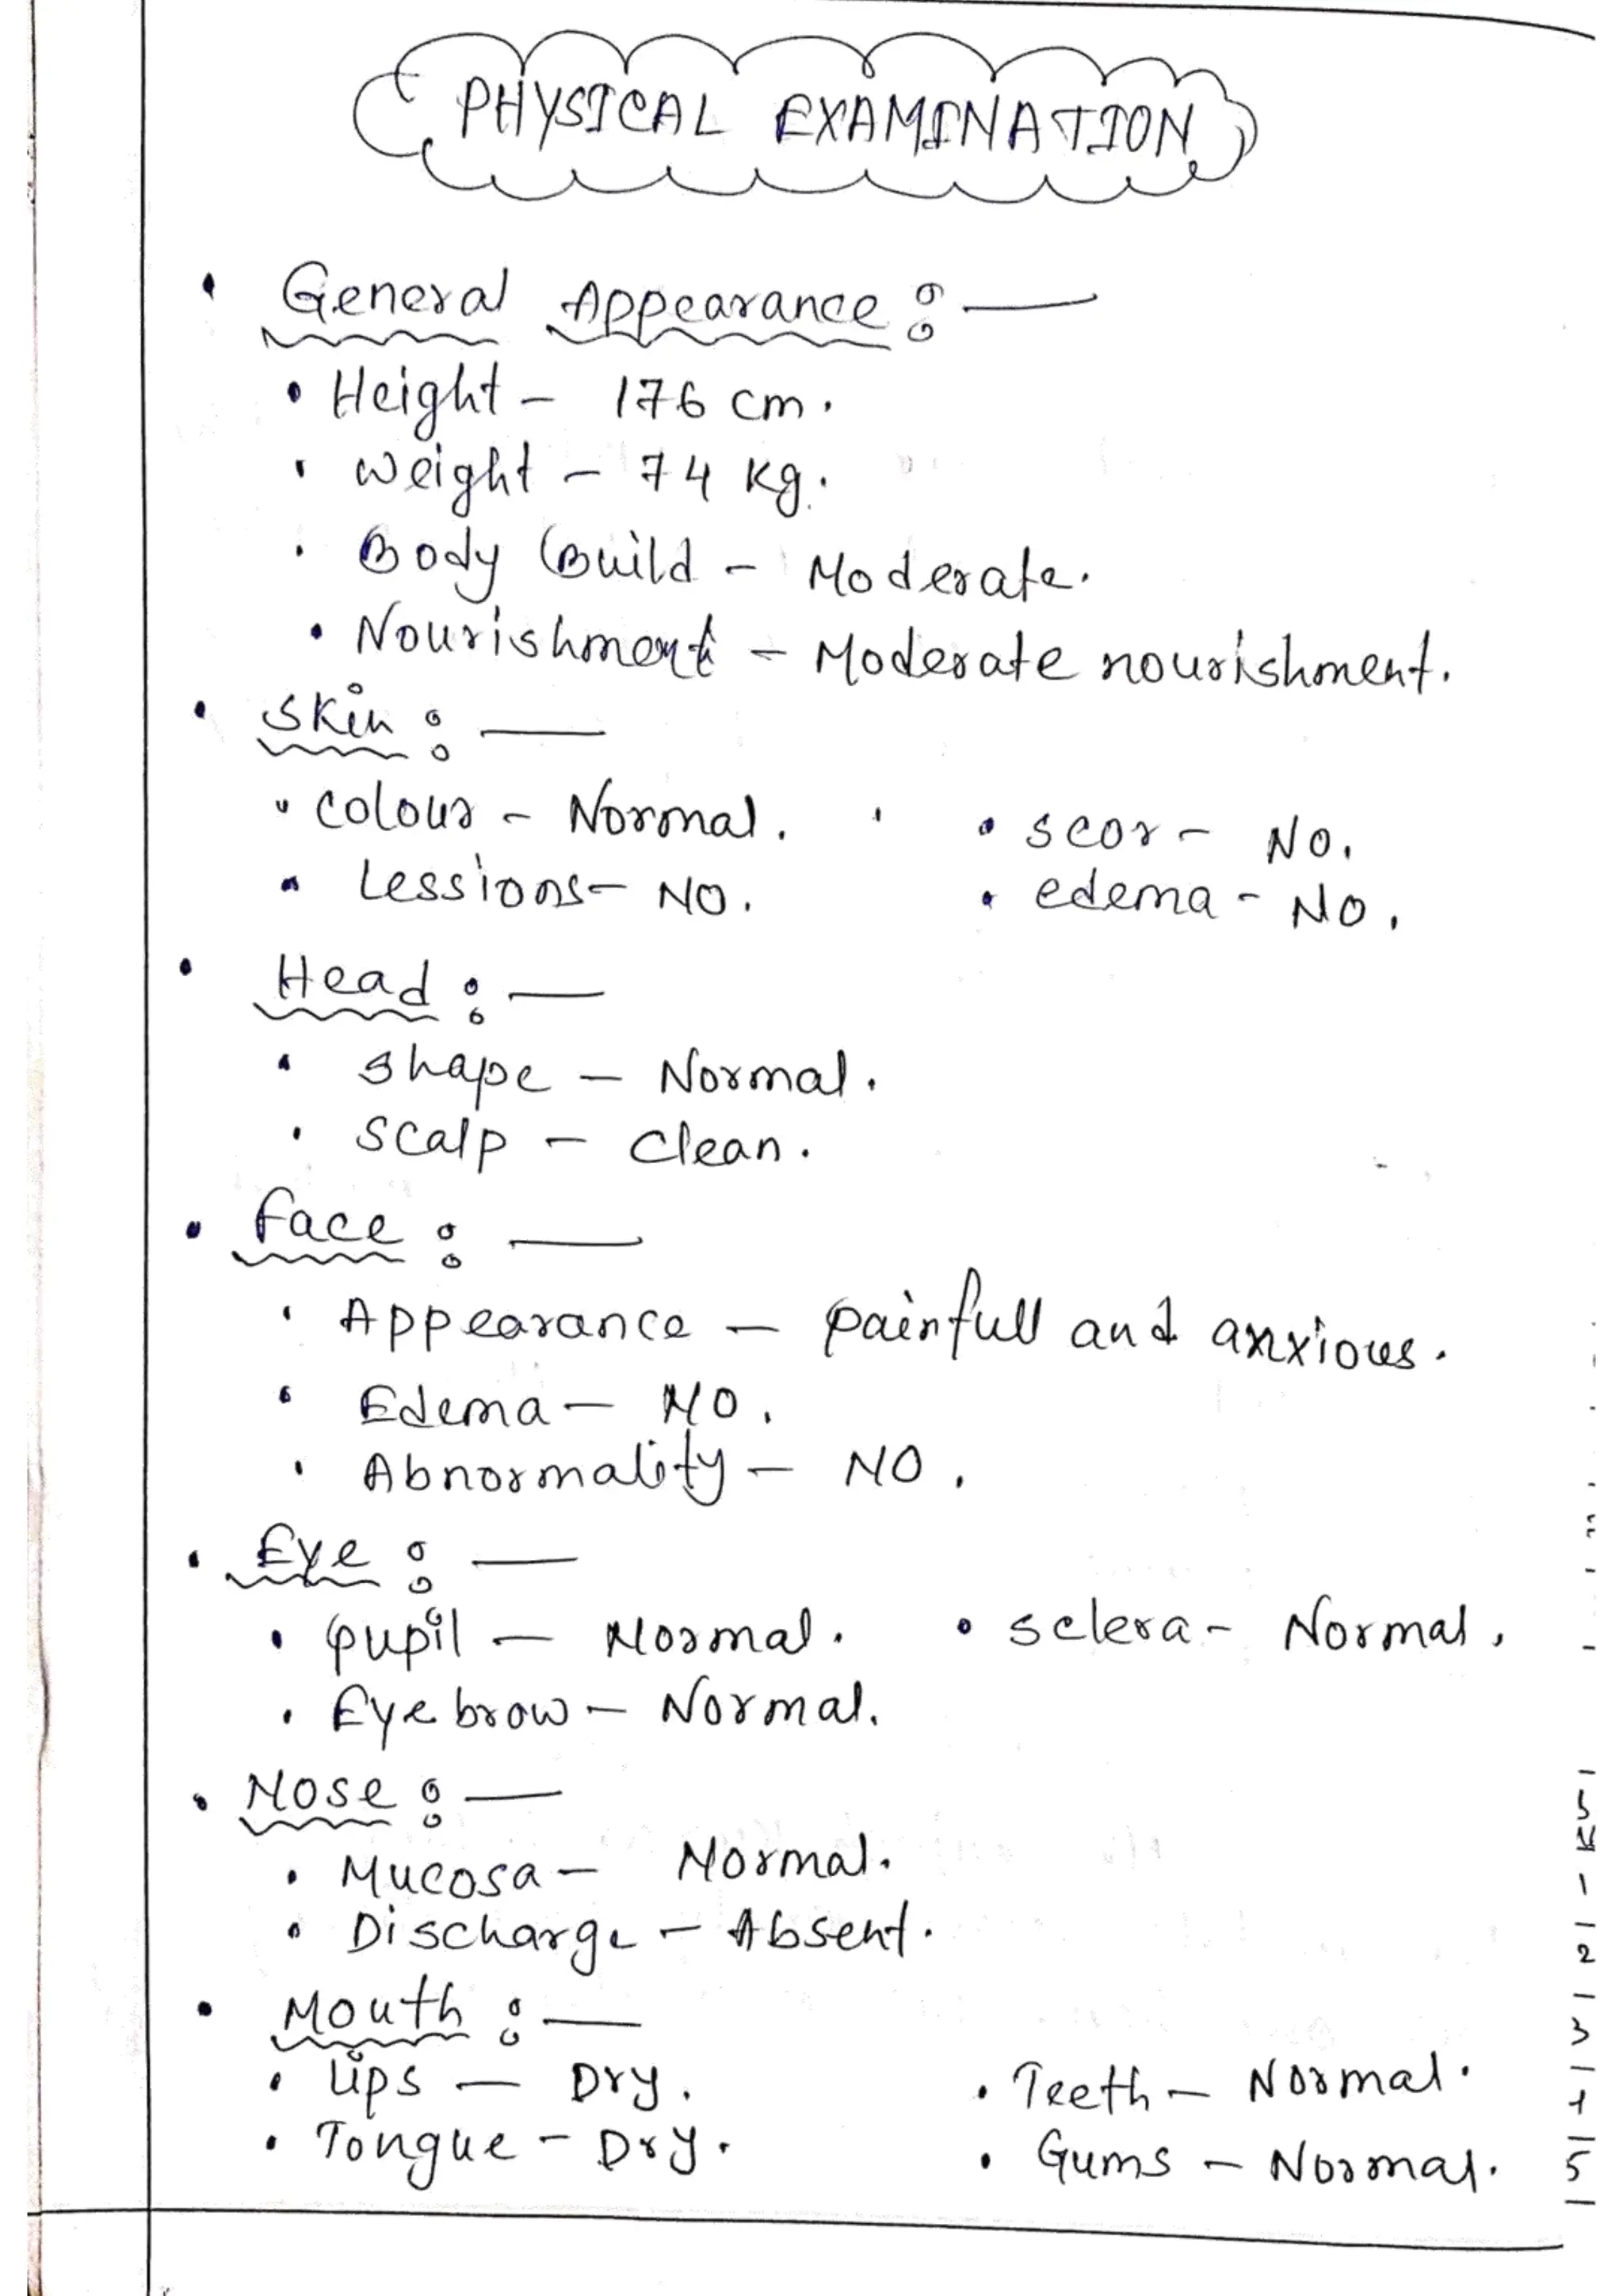 PHYSICAL EXAMINATION
• General Appearance :—
• Height - 176 cm.
• Weight - 74 Kg.
• Body Build - Moderate.
• Nourishment - Moderate nourishment.
• Skin :—
• colour - Normal. • scor - No.
• Lessions - NO. • edema - No.
• Head :—
• shape - Normal.
• scalp - Clean.
• face :—
• Appearance - painfull and anxious.
• Edema - NO.
• Abnormality - NO.
• Eye :—
• pupil - Normal. • sclera - Normal.
• Eyebrow - Normal.
• Nose :—
• Mucosa - Normal.
• Discharge - Absent.
• Mouth :—
• Lips - Dry. • Teeth - Normal.
• Tongue - Dry. • Gums - Normal.